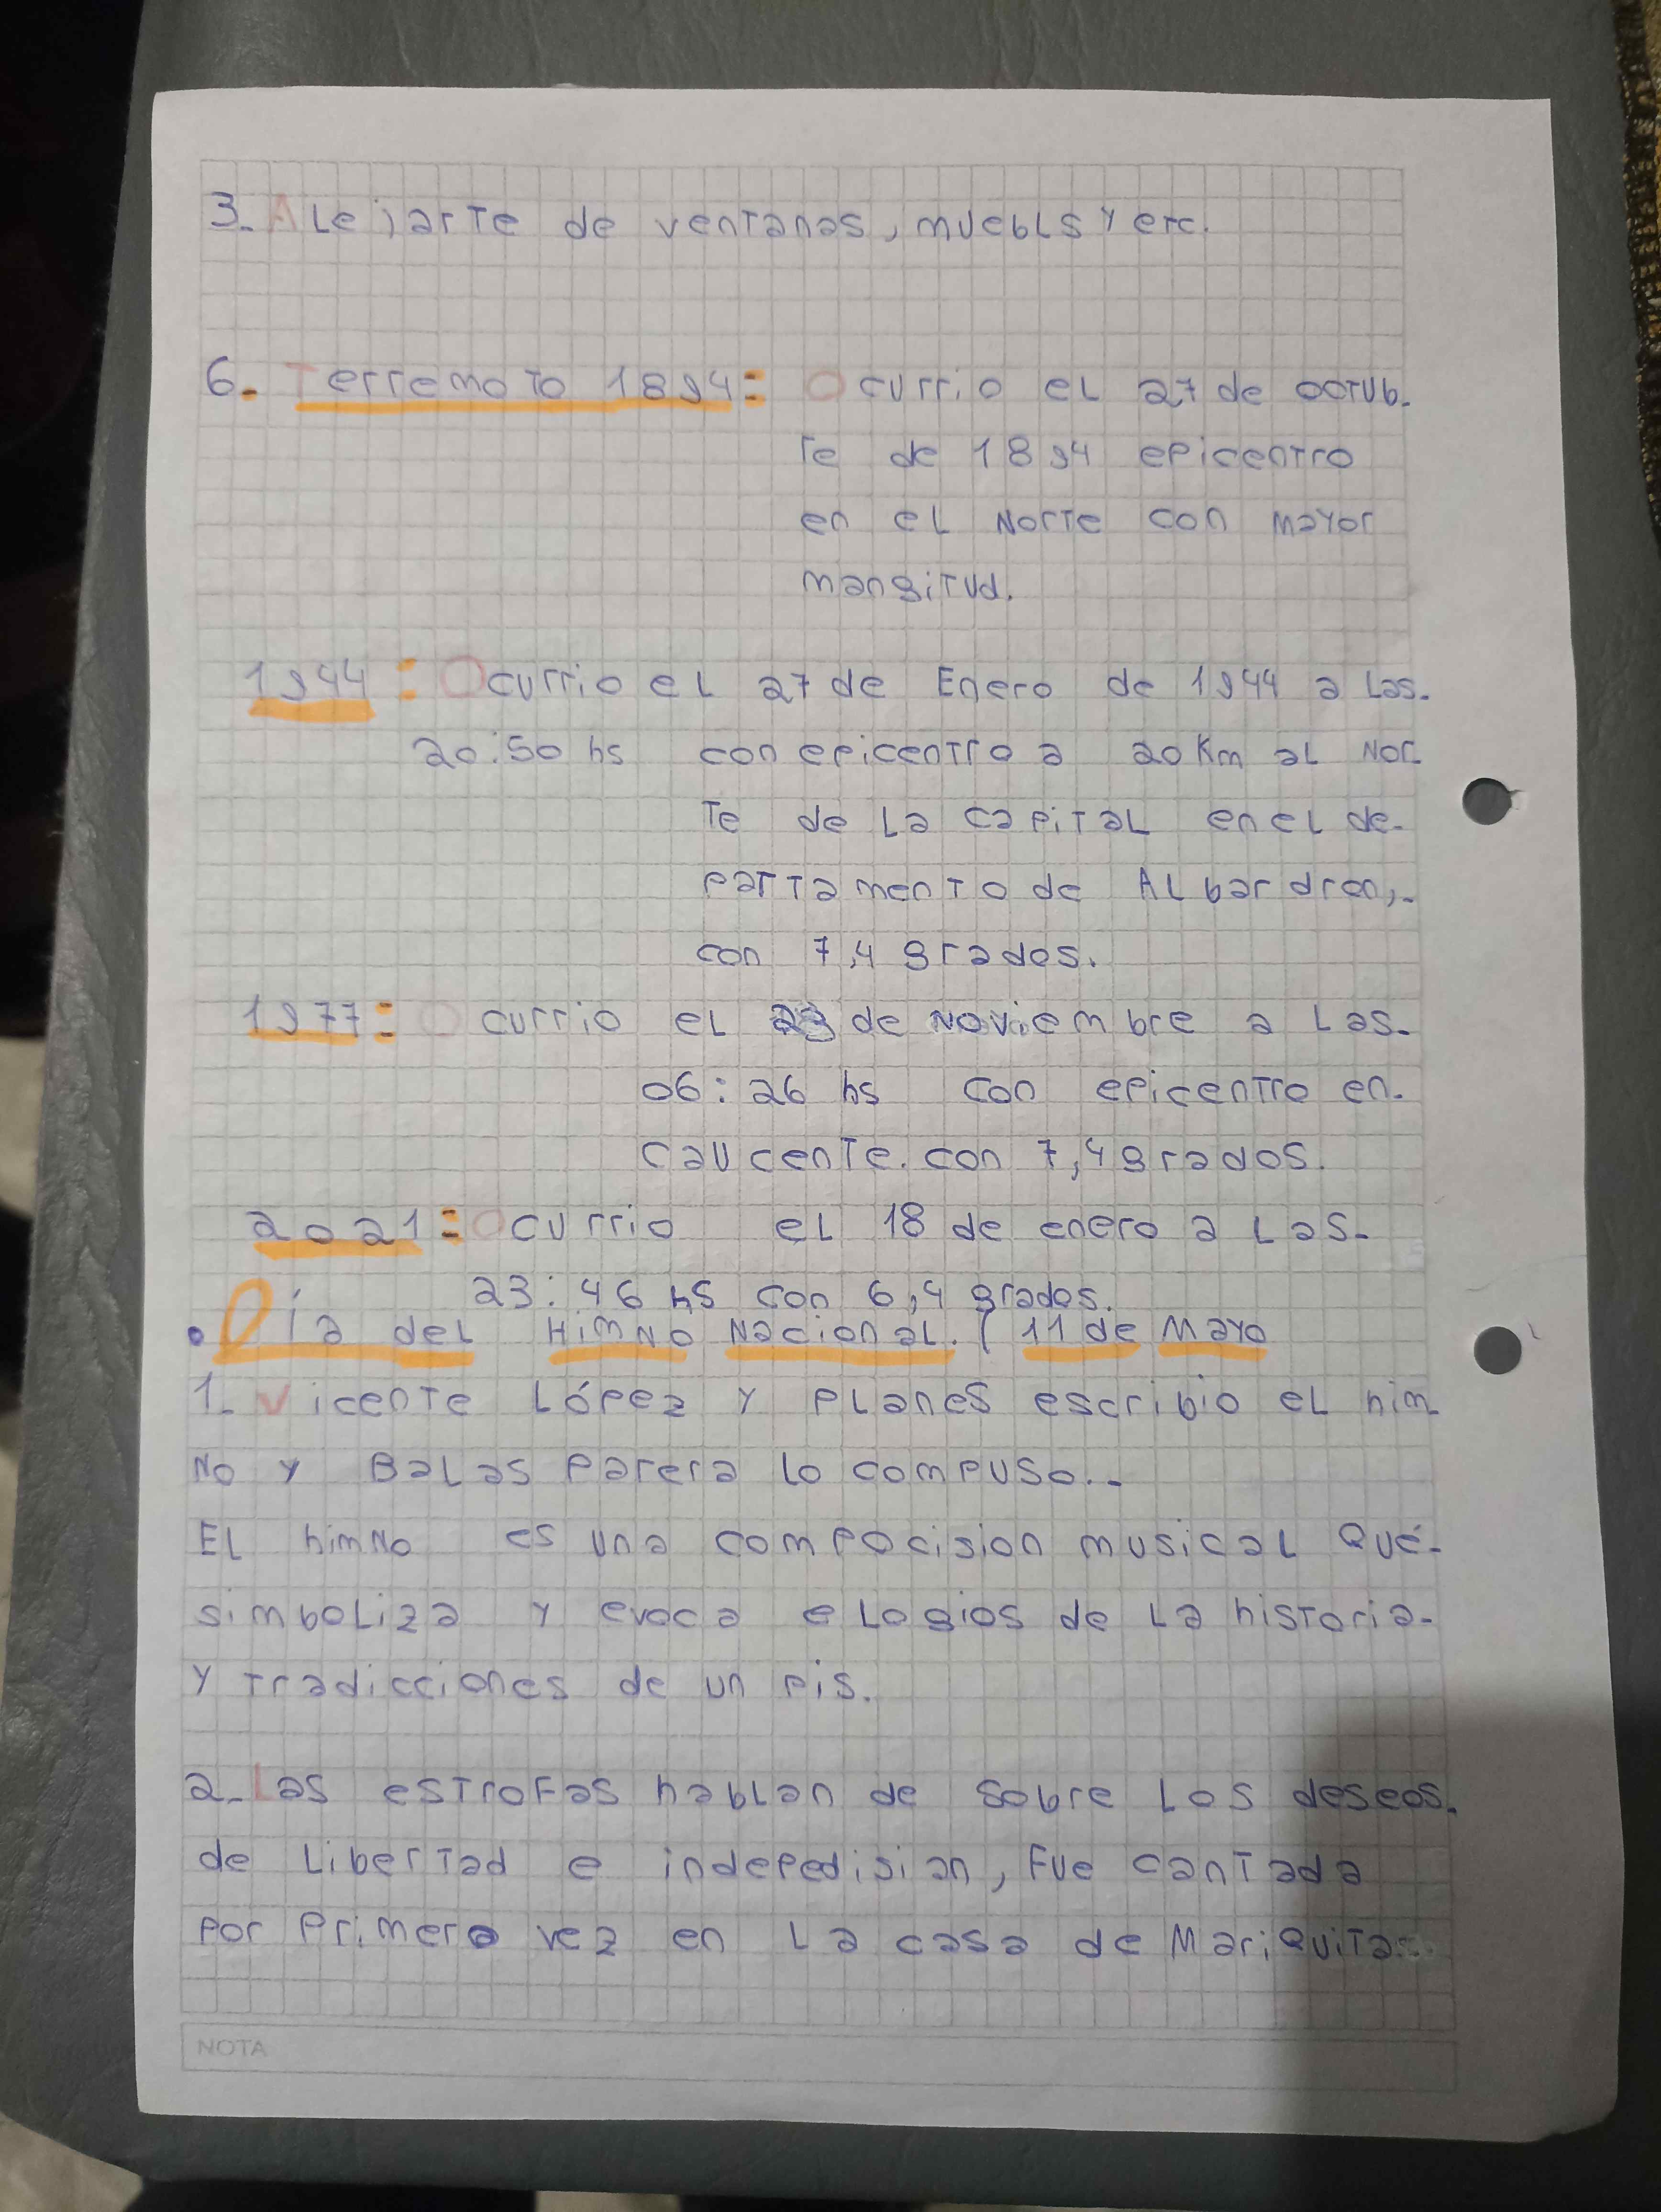 3. Alejarte de ventanas, muebls y etc.
6. Terremoto 1894: Ocurrio el 27 de octub-
re de 1894 epicentro
en el Norte con mayor
mangitud.
1944: Ocurrio el 27 de Enero de 1944 a las-
20:50 hs con epicentro a 20 Km al Nor-
te de la capital en el de-
partamento de Albardron,-
con 7,4 grados.
1977: Ocurrio el 23 de Noviembre a las-
06:26 hs con epicentro en-
Caucente. con 7,4 grados.
2021: Ocurrio el 18 de enero a las-
23:46 hs con 6,4 grados.
• Día del Himno Nacional. ( 11 de Mayo
1- Vicente López y planes escribio el him-
No y Balas Parera lo compuso.-
El himno es una compocision musical que-
simboliza y evoca elogios de la historia-
y tradicciones de un pis.
2- Las estrofas hablan de sobre los deseos-
de libertad e indepedisian, fue cantada
por primera vez en la casa de Mariquita-
NOTA